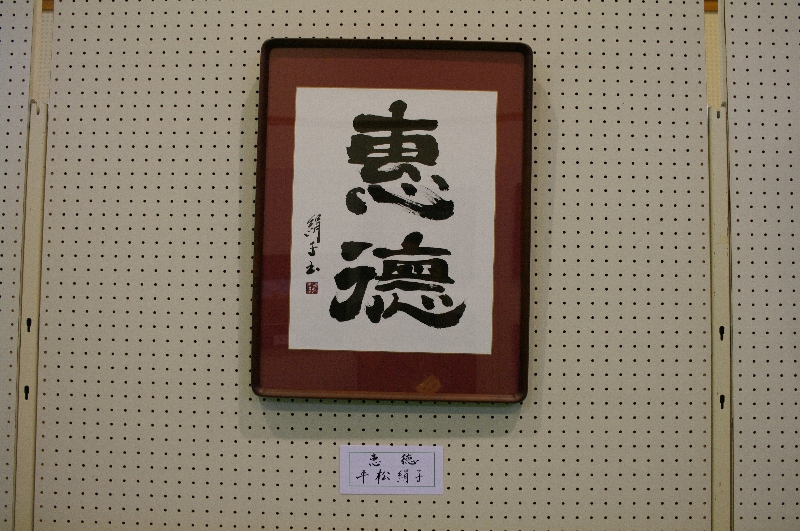 惠德
絹子書
惠 德
平松絹子